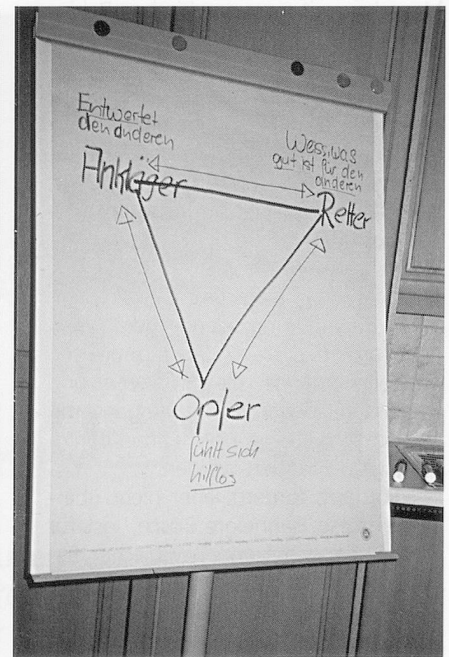 Entwertet
den anderen
Ankläger
Weiss, was
gut ist für den
anderen
Retter
Opfer
fühlt sich
hilflos